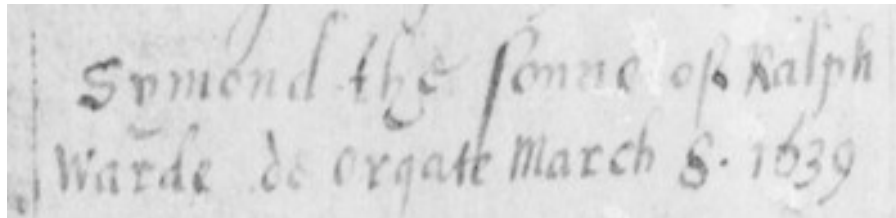 Symond the sonne of Ralph
Warde de Orgate March 8. 1639